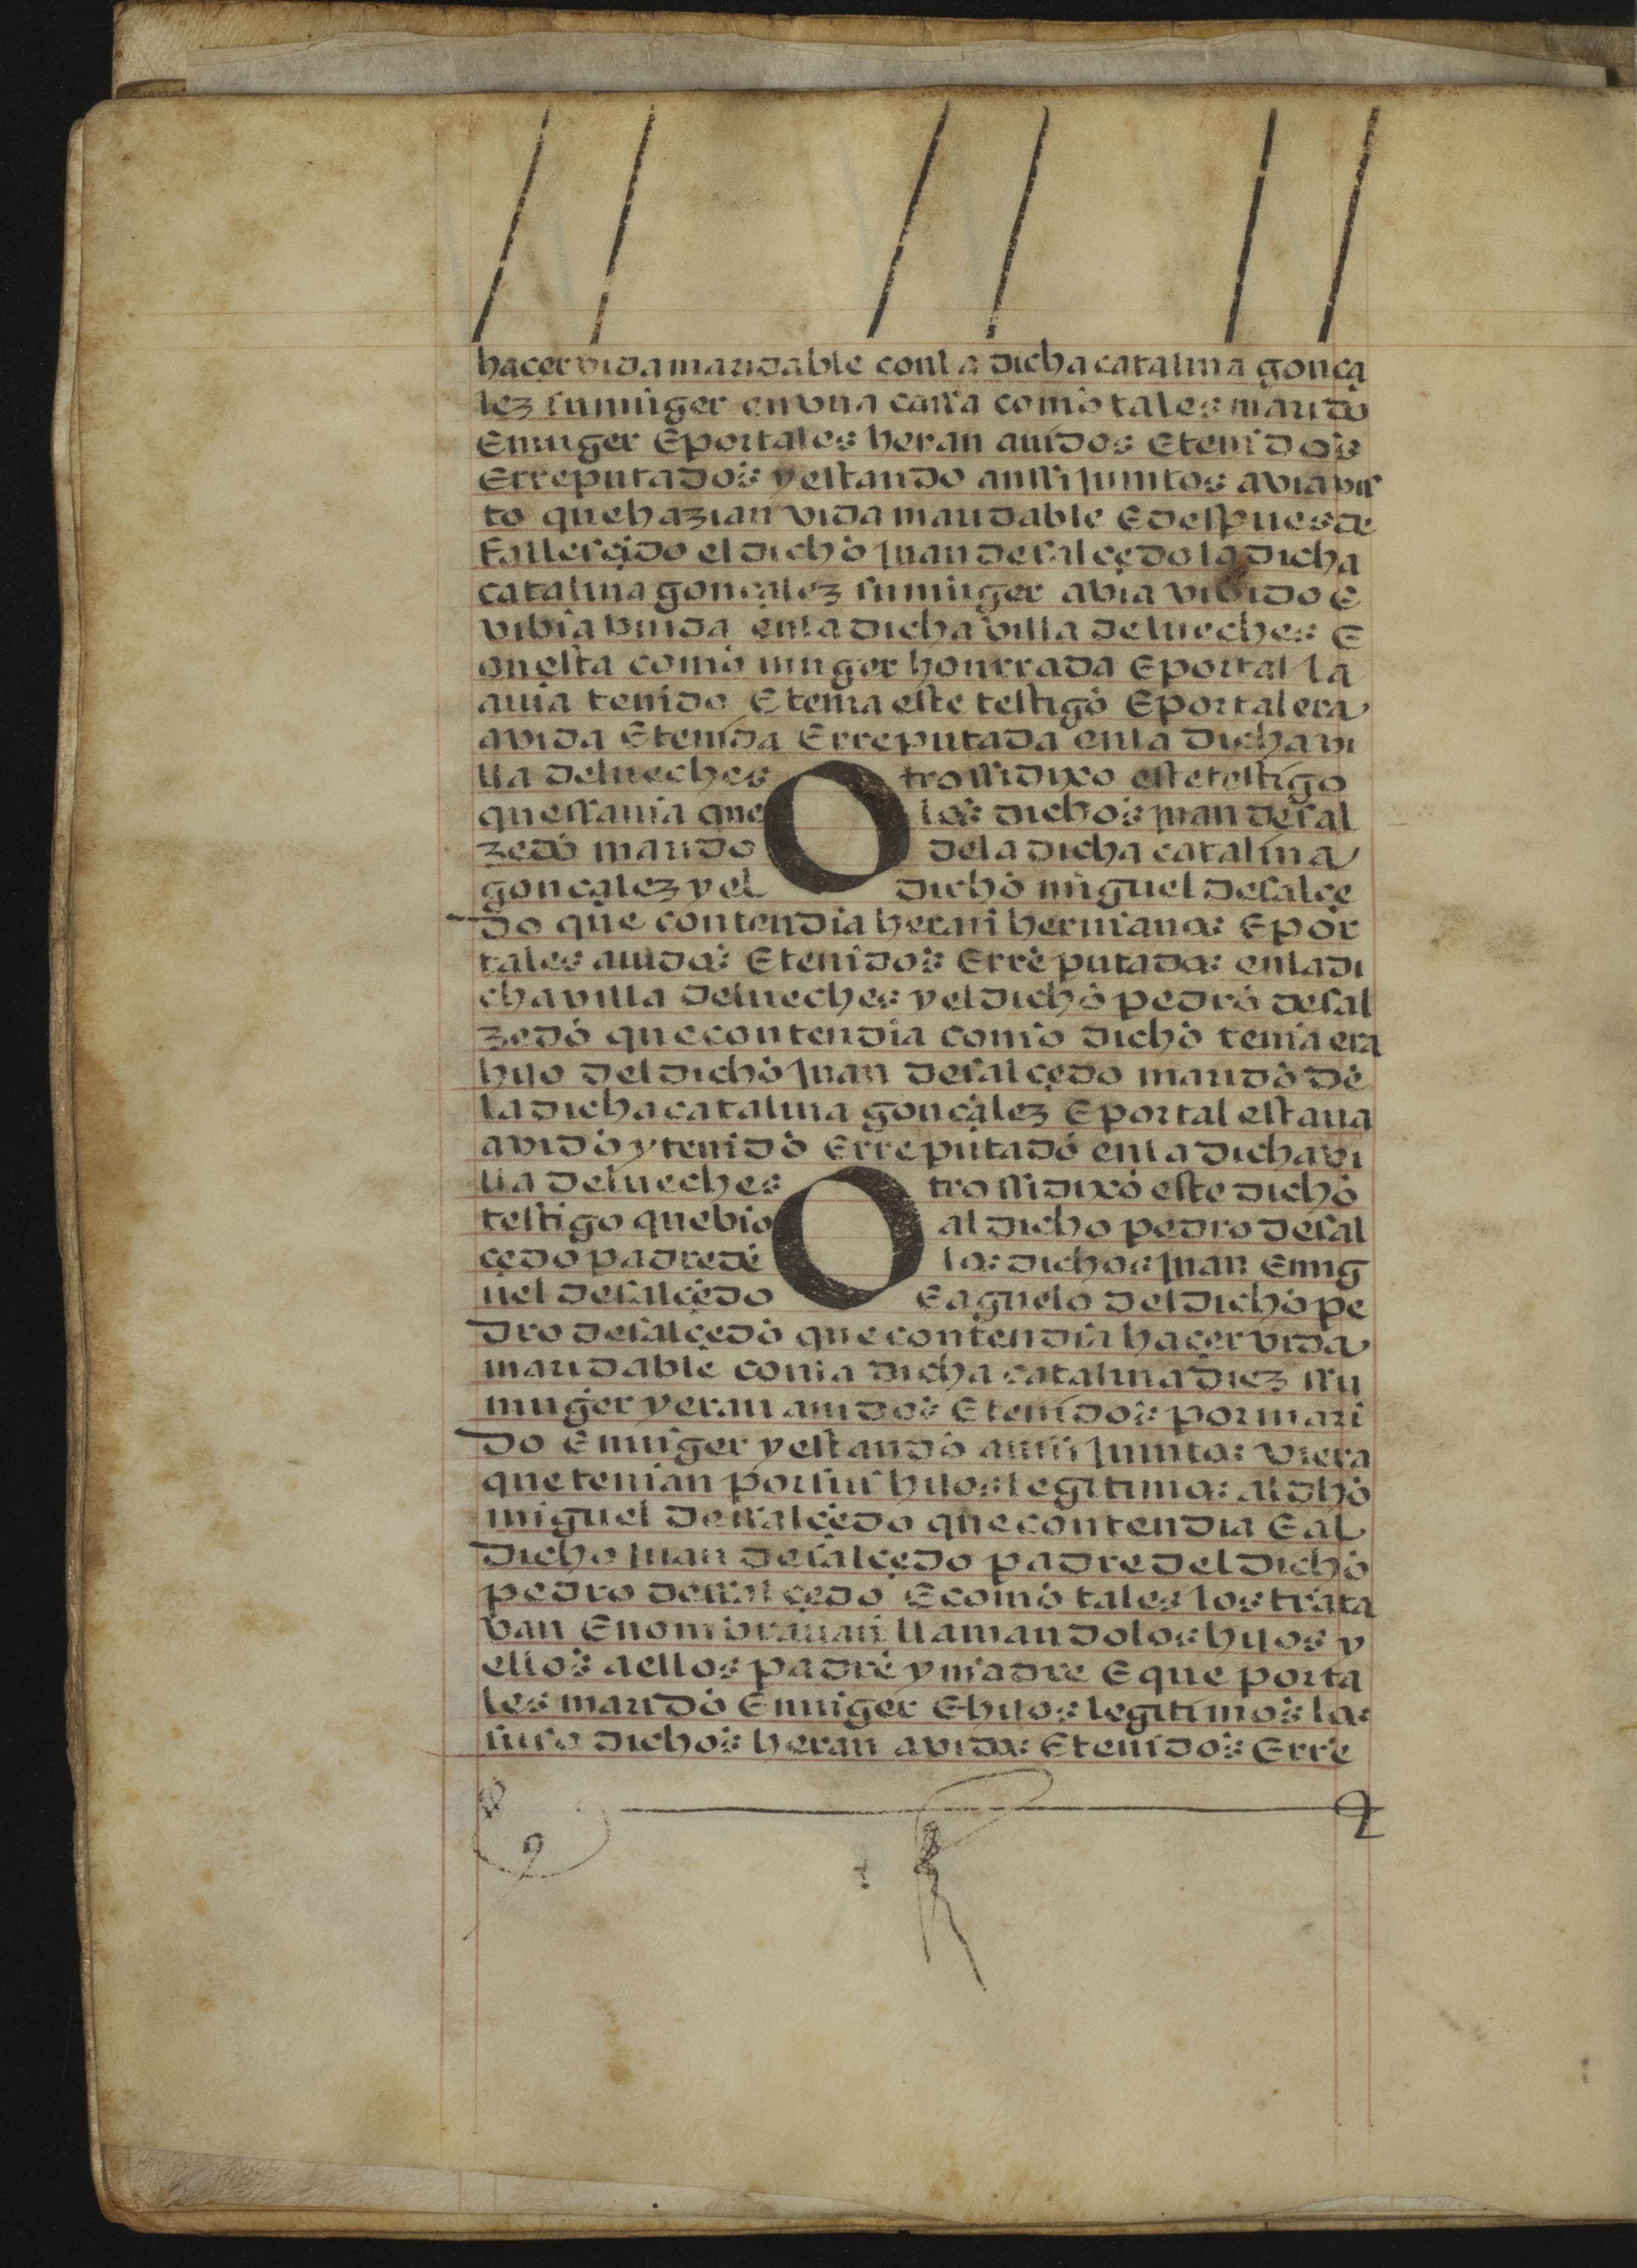 hacer vida maridable con la dicha catalina gonça
lez su muger en vna cassa como tales marido
E muger E por tales heran auidos E tenidos
E rreputados y estando anssi juntos avia vis
to que hazian vida maridable E despues de
fallesçido el dicho juan de salçedo la dicha
catalina gonçalez su muger abia vibido E
vibia biuda en la dicha villa de lueches E
onesta como muger honrrada E por tal la
auia tenido E tenia este testigo E por tal era
avida E tenida E rreputada en la dicha vi
lla de lueches Otrossi dixo este testigo
que ssauia que los dichos juan de sal
zedo marido de la dicha catalina
gonçalez y el dicho miguel de salçe
do que contendia heran hermanos E por
tales auidos E tenidos E rreputados en la di
cha villa de lueches y el dicho pedro de sal
zedo que contendia como dicho tenia era
hijo del dicho juan de salçedo marido de
la dicha catalina gonçalez E por tal estaua
avido y tenido E rreputado en la dicha vi
lla de lueches Otrossi dixo este dicho
testigo que bio al dicho pedro de sal
çedo padre de los dichos juan E mig
uel de salçedo E aguelo del dicho pe
dro de salçedo que contendia hacer vida
maridable con la dicha catalina diez ssu
muger y eran auidos E tenidos por mari
do E muger y estando anssi juntos viera
que tenian por sus hijos legitimos al dho
miguel de ssalçedo que contendia E al
dicho juan de salçedo padre del dicho
pedro de ssalçedo E como tales los trata
van E nombrauan llamandolos hijos y
ellos a ellos padre y madre E que por ta
les marido E muger E hijos legitimos los
suso dichos heran avidos E tenidos E rre